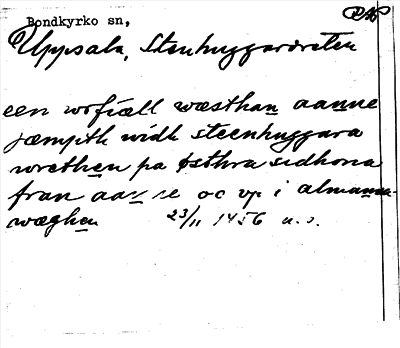 Bondkyrko sn,
RAP
Uppsala, Stenhuggarvreten
een wrfiæll wæsthan aanne
jæmpth widh steenhuggara
wrethen pa østhra sidhona
fran aanne oc vp i almanna-
wæghen 23/11 1456 u.s.